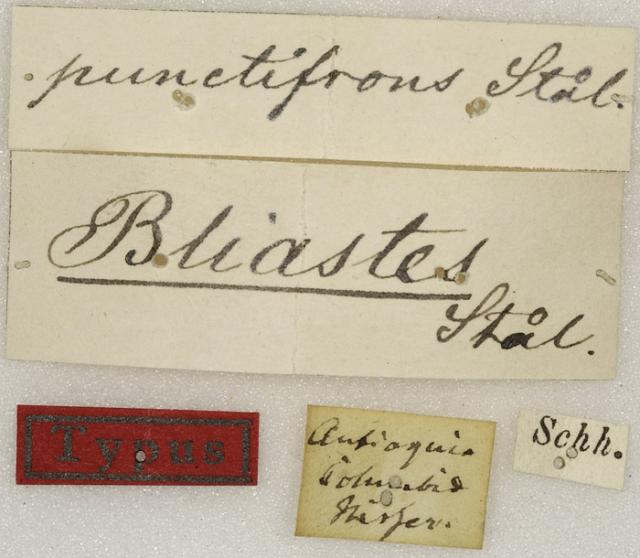 punctifrons Stål.
Bliastes
Stål.
Typus
Antioquia
Columbia
Schh.